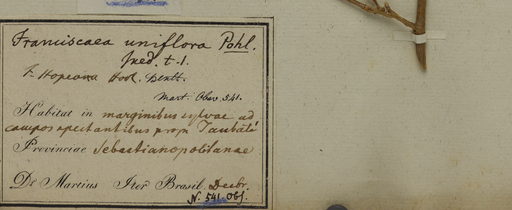 Franciscaea uniflora Pohl.
Fr. Hopeana Hook. Benth.
Mart. Obs. 541.
Habitat in marginibus sylvae ad
campos spectantibus prope Taubaté
Provinciae Sebastianopolitanae
Dr Martius Iter Brasil. Decbr.
N. 541. Obs.